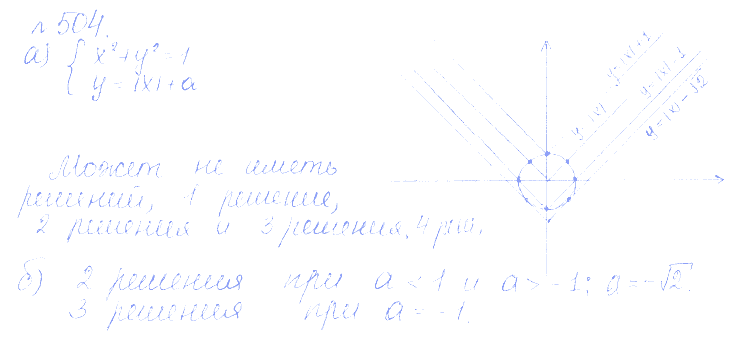 № 504.
а) { x² + y² = 1
y = |x| + a
y = |x|
y = |x| + 1
y = |x| - 1
y = |x| - √2
Может не иметь
решений, 1 решение,
2 решения и 3 решения, 4 реш.
б) 2 решения при a < 1 и a > -1; a = -√2.
3 решения при a = -1.